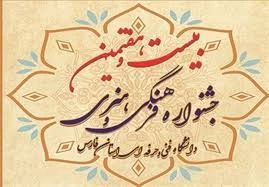 بیست و هفتمین
جشنواره فرهنگی و هنری
دانشگاه فنی و حرفه ای استان فارس